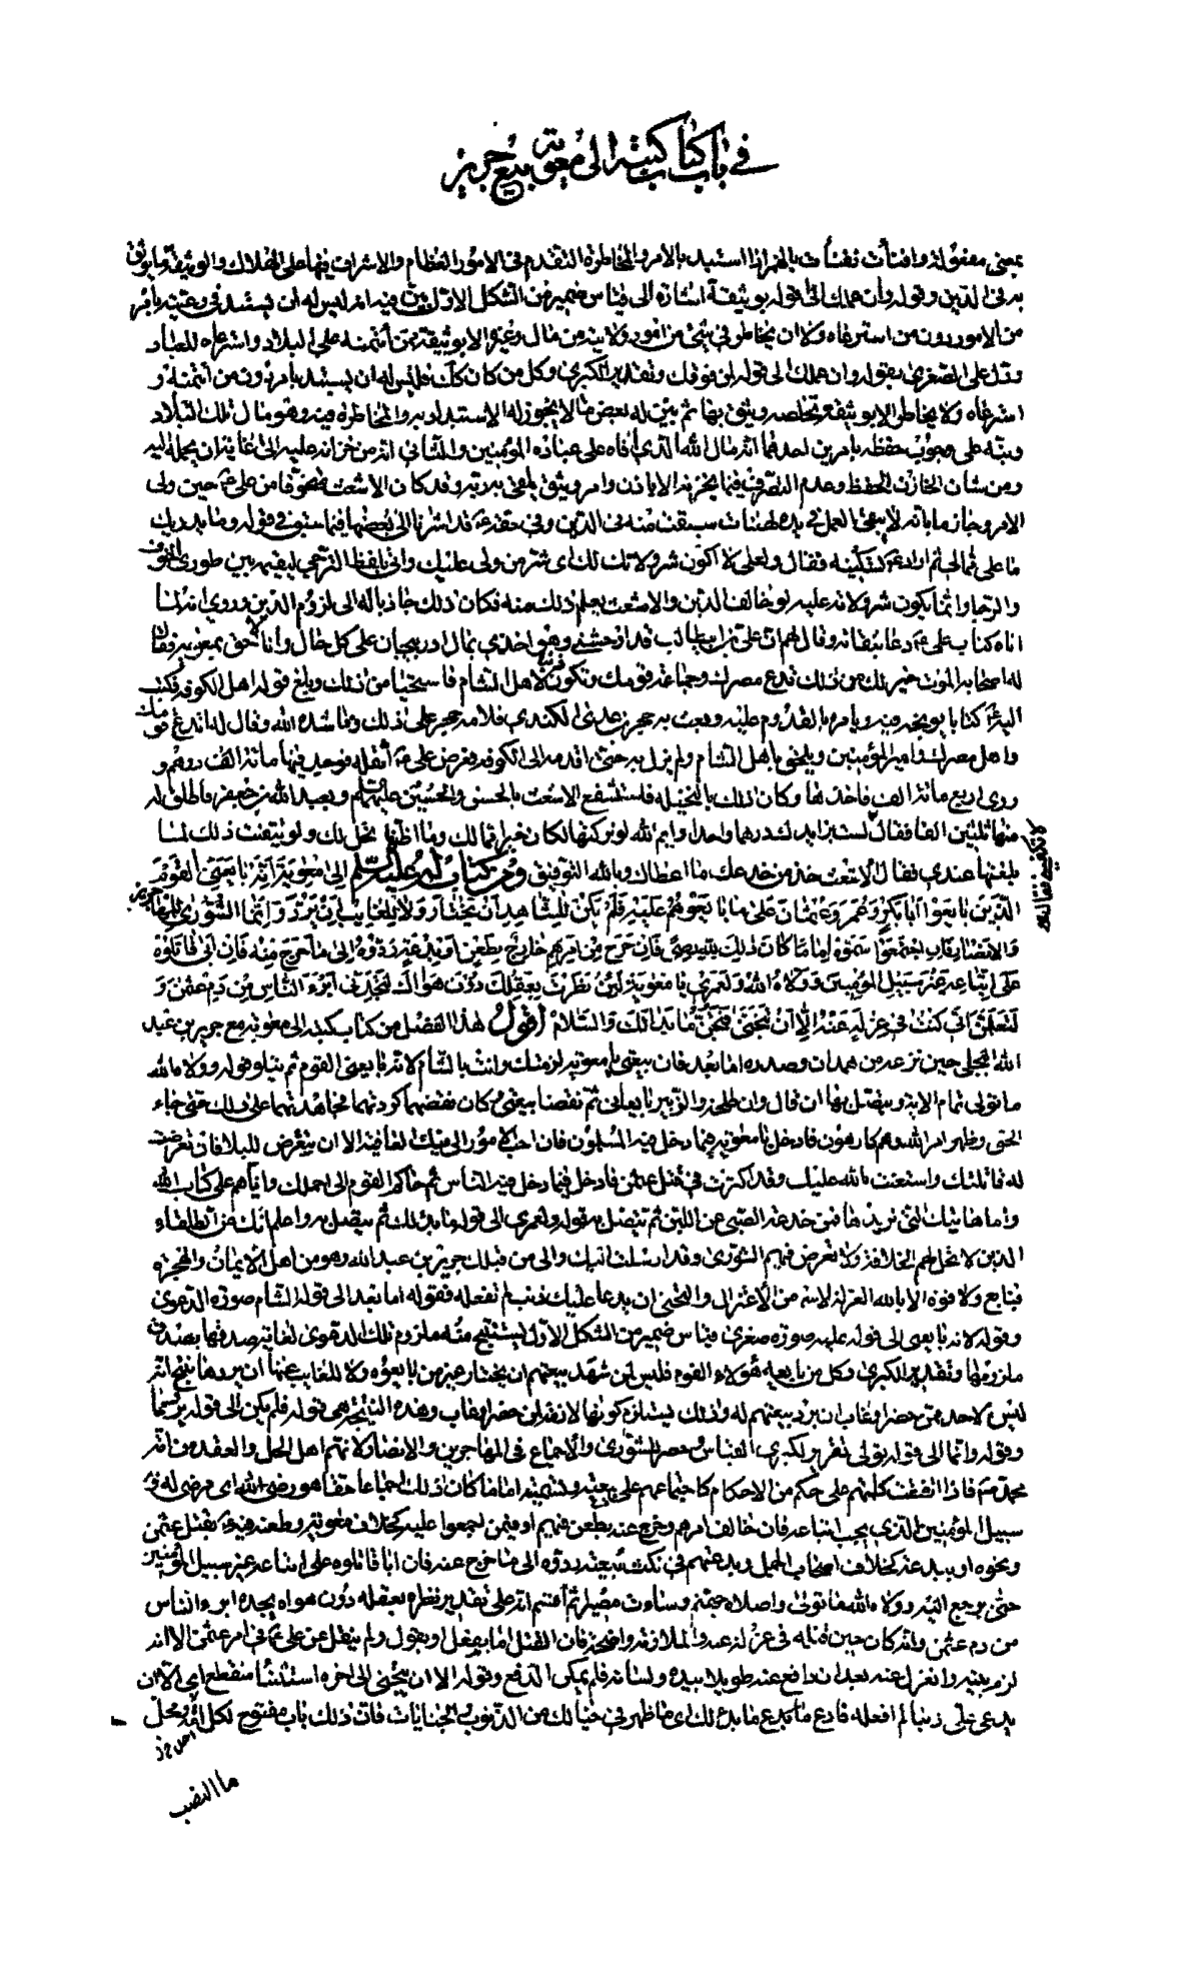 في باب كتاب كتبه الى معوية بيد جرير
بمعنى مفعولة وافتأت تفتأت بالهمز اذا استبد بالامر والمخاطرة التقدم في الامور العظام والاشراف فيها على الهلاك والوثيقة ما يوثق
به في الدين وقوله وان عملك الى قوله بوثيقة اشارة الى قياس ضمير من الشكل الاول بين فيه انه ليس له ان يستبد في رعيته بامر
من الامور دون من استرعاه ولا ان يخاطر في شئ من امور ولايته من مال وغيره الا بوثيقة ممن ائتمنه على البلاد واسترعاه للعباد
ودل على الصغرى بقوله وان عملك الى قوله لمن فوقك وتقدير الكبرى وكل من كان كك فليس له ان يستبد بامر دون من ائتمنه و
استرعاه ولا يخاطر الا بوثيقة وتخلصه ويثق بها ثم بين له بعض ما لا يجوز له الاستبداد به والمخاطرة فيه وهو مال تلك البلاد
ونبه على وجوب حفظه بامرين احدهما انه مال الله الذي افاه على عباده المؤمنين والثاني انه من خزانه عليه الى غاية ان يحمله اليه
ومن شان الخازن الحفظ وعدم التصرف فيما يخزنه الا باذن وامر وثيق يلقى به ربه وقد كان الاشعث متخوفا من علي ع حين ولى
الامر وجازما بانه لا يبقى العمل في يده لهنات سبقت منه في الدين وفي حقه ع قد اشرنا الى بعضها فيما سبق في قوله وما يدريك
ما علي مما لي ثم اراد ع تسكينه فقال ولعلي لا اكون شر ولاتك لك اى شر من ولى عليك واتى بلفظ الترجي ليقيمه بين طورى الخوف
والرجا وانما يكون شر ولاته عليه لو خالف الدين والاشعث يعلم ذلك منه فكان ذلك جاذبا له الى لزوم الدين وروي انه لما
اتاه كتاب علي ع دعا بثقاته وقال لهم ان علي بن ابي طالب قد اوحشني وهو اخذي بمال اذربيجان على كل حال وانا لاحق بمعوية فقال
له اصحابه الموت خير لك من ذلك تدع مصرك وجماعة قومك وتكون ذنبا لاهل الشام فاستحيا من ذلك وبلغ قوله اهل الكوفة فكتب
اليه ع كتابا يوبخه فيه ويامره بالقدوم عليه وبعث به حجر بن عدي الكندي فلامه حجر على ذلك وناشده الله وقال له اتدع قومك
واهل مصرك وامير المؤمنين وتلحق باهل الشام ولم يزل به حتى اقدمه الى الكوفة فعرض على ع ثقله فوجد فيها مائة الف درهم و
روى اربع مائة الف فاخذها وكان ذلك بالنخيلة فاستشفع الاشعث بالحسن والحسين عليهما السلم وبعبد الله بن جعفر فاطلق له
منها ثلثين الفا فقال لست بزايدك درهما واحدا وايم الله لو تركتها لكان خيرا فمالك وما اظنها تحل لك ولو تيقنت ذلك لما
بلغتها عندي فقال الاشعث خذ من خدعك ما اعطاك وبالله التوفيق ومن كتاب له عليه السلم الى معوية انه بايعني القوم
الذين بايعوا ابا بكر وعمر وعثمان على ما بايعوهم عليه فلم يكن للشاهد ان يختار ولا للغايب ان يرد وانما الشورى للمهاجرين
والانصار فان اجتمعوا على رجل وسموه اماما كان ذلك لله رضى فان خرج من امرهم خارج بطعن او بدعة ردوه الى ما خرج منه فان ابى قاتلوه
على اتباعه غير سبيل المؤمنين وولاه الله ما تولى ولعمري يا معوية لئن نظرت بعقلك دون هواك لتجدني ابرء الناس من دم عثمن و
لتعلمن اني كنت في عزلة عنه الا ان تتجنى فتجن ما بدا لك والسلام اقول هذا الفصل من كتاب كتبه الى معوية مع جرير بن عبد
الله البجلي حين نزعه من همدان وصدره اما بعد فان بيعتي يا معوية لزمتك وانت بالشام لانه بايعني القوم ثم يتلوه قوله وولاه الله
ما تولى تمام الاية ويتصل بها ان قال وان طلحة والزبير بايعاني ثم نقضا بيعتي وكان نقضهما كردتهما فجاهدتهما على ذلك حتى جاء
الحق وظهر امر الله وهم كارهون فادخل يا معوية فيما دخل فيه المسلمون فان احب الامور الي فيك العافية الا ان تتعرض للبلا فان تعرضت
له قاتلتك واستعنت بالله عليك وقد اكثرت في قتل عثمن فادخل فيما دخل فيه الناس ثم حاكم القوم الي احملك واياهم على كتاب الله
واما هاتيك التي تريدها فهي خدعة الصبي عن اللبن ثم يتصل به قوله ولعمري الى قوله ما بدا لك ثم يتصل به واعلم انك من الطلقاء
الذين لا تحل لهم الخلافة ولا تعرض فيهم الشورى وقد ارسلت اليك والى من قبلك جرير بن عبد الله وهو من اهل الايمان والهجرة
فبايع ولا قوة الا بالله العزلة الاسم من الاعتزال والتجني ان يدعا عليك ذنب لم تفعله فقوله اما بعد الى قوله الشام صورة الدعوى
وقوله لانه بايعني الى قوله عليه صورة صغرى قياس ضمير من الشكل الاول يستنتج منه ملزوم تلك الدعوى لغاية صدقها بصدق
ملزومها وتقدير الكبرى وكل من بايعه هؤلاء القوم فليس لمن شهد بيعتهم ان يختار غير من بايعوه ولا للغايب عنها ان يردها ينتج انه
ليس لاحد ممن حضر او غاب ان يرد بيعتهم له وذلك يستلزم كونها لازمة لمن حضر او غاب وهذه النتيجة هي قوله فلم يكن الى قوله يرد
وقوله وانما الى قوله تولى تقرير لكبرى القياس وحصر للشورى والاجماع في المهاجرين والانصار لانهم اهل الحل والعقد من امة
محمد ص فاذا اتفقت كلمتهم على حكم من الاحكام كاجتماعهم على بيعته وتسميته اماما كان ذلك اجماعا حقا هو رضى الله اى مرضى له و
سبيل المؤمنين الذي يجب اتباعه فان خالف امرهم وخرج عنه بطعن فيهم او فيمن اجمعوا عليه كخلاف معوية وطعنه فيه ع بقتل عثمن
ونحوه او ببدعة كخلاف اصحاب الجمل وبدعتهم في نكث بيعته ردوه الى ما خرج عنه فان ابى قاتلوه على اتباعه غير سبيل المؤمنين
حتى يرجع اليه وولاه الله ما تولى واصلاه جهنم وساءت مصيرا ثم اقسم انه على تقدير نظره بعقله دون هواه يجده ابرء الناس
من دم عثمن وانه كان حين قتله في عزلة عنه والملازمة واضحة فان القتل اما بفعل او بقول ولم ينقل عن علي ع في امر عثمن الا انه
لزم بيته وانعزل عنه بعد ان دافع عنه طويلا بيده ولسانه فلم يمكن الدفع وقوله الا ان تتجنى الى اخره استثناء منقطع اى الا ان
تدعي على ذنبا لم افعله فادع ما بدا لك اى ما ظهر في خيالك من الذنوب والجنايات فان ذلك باب مفتوح لكل احد ومحل
ما النصب